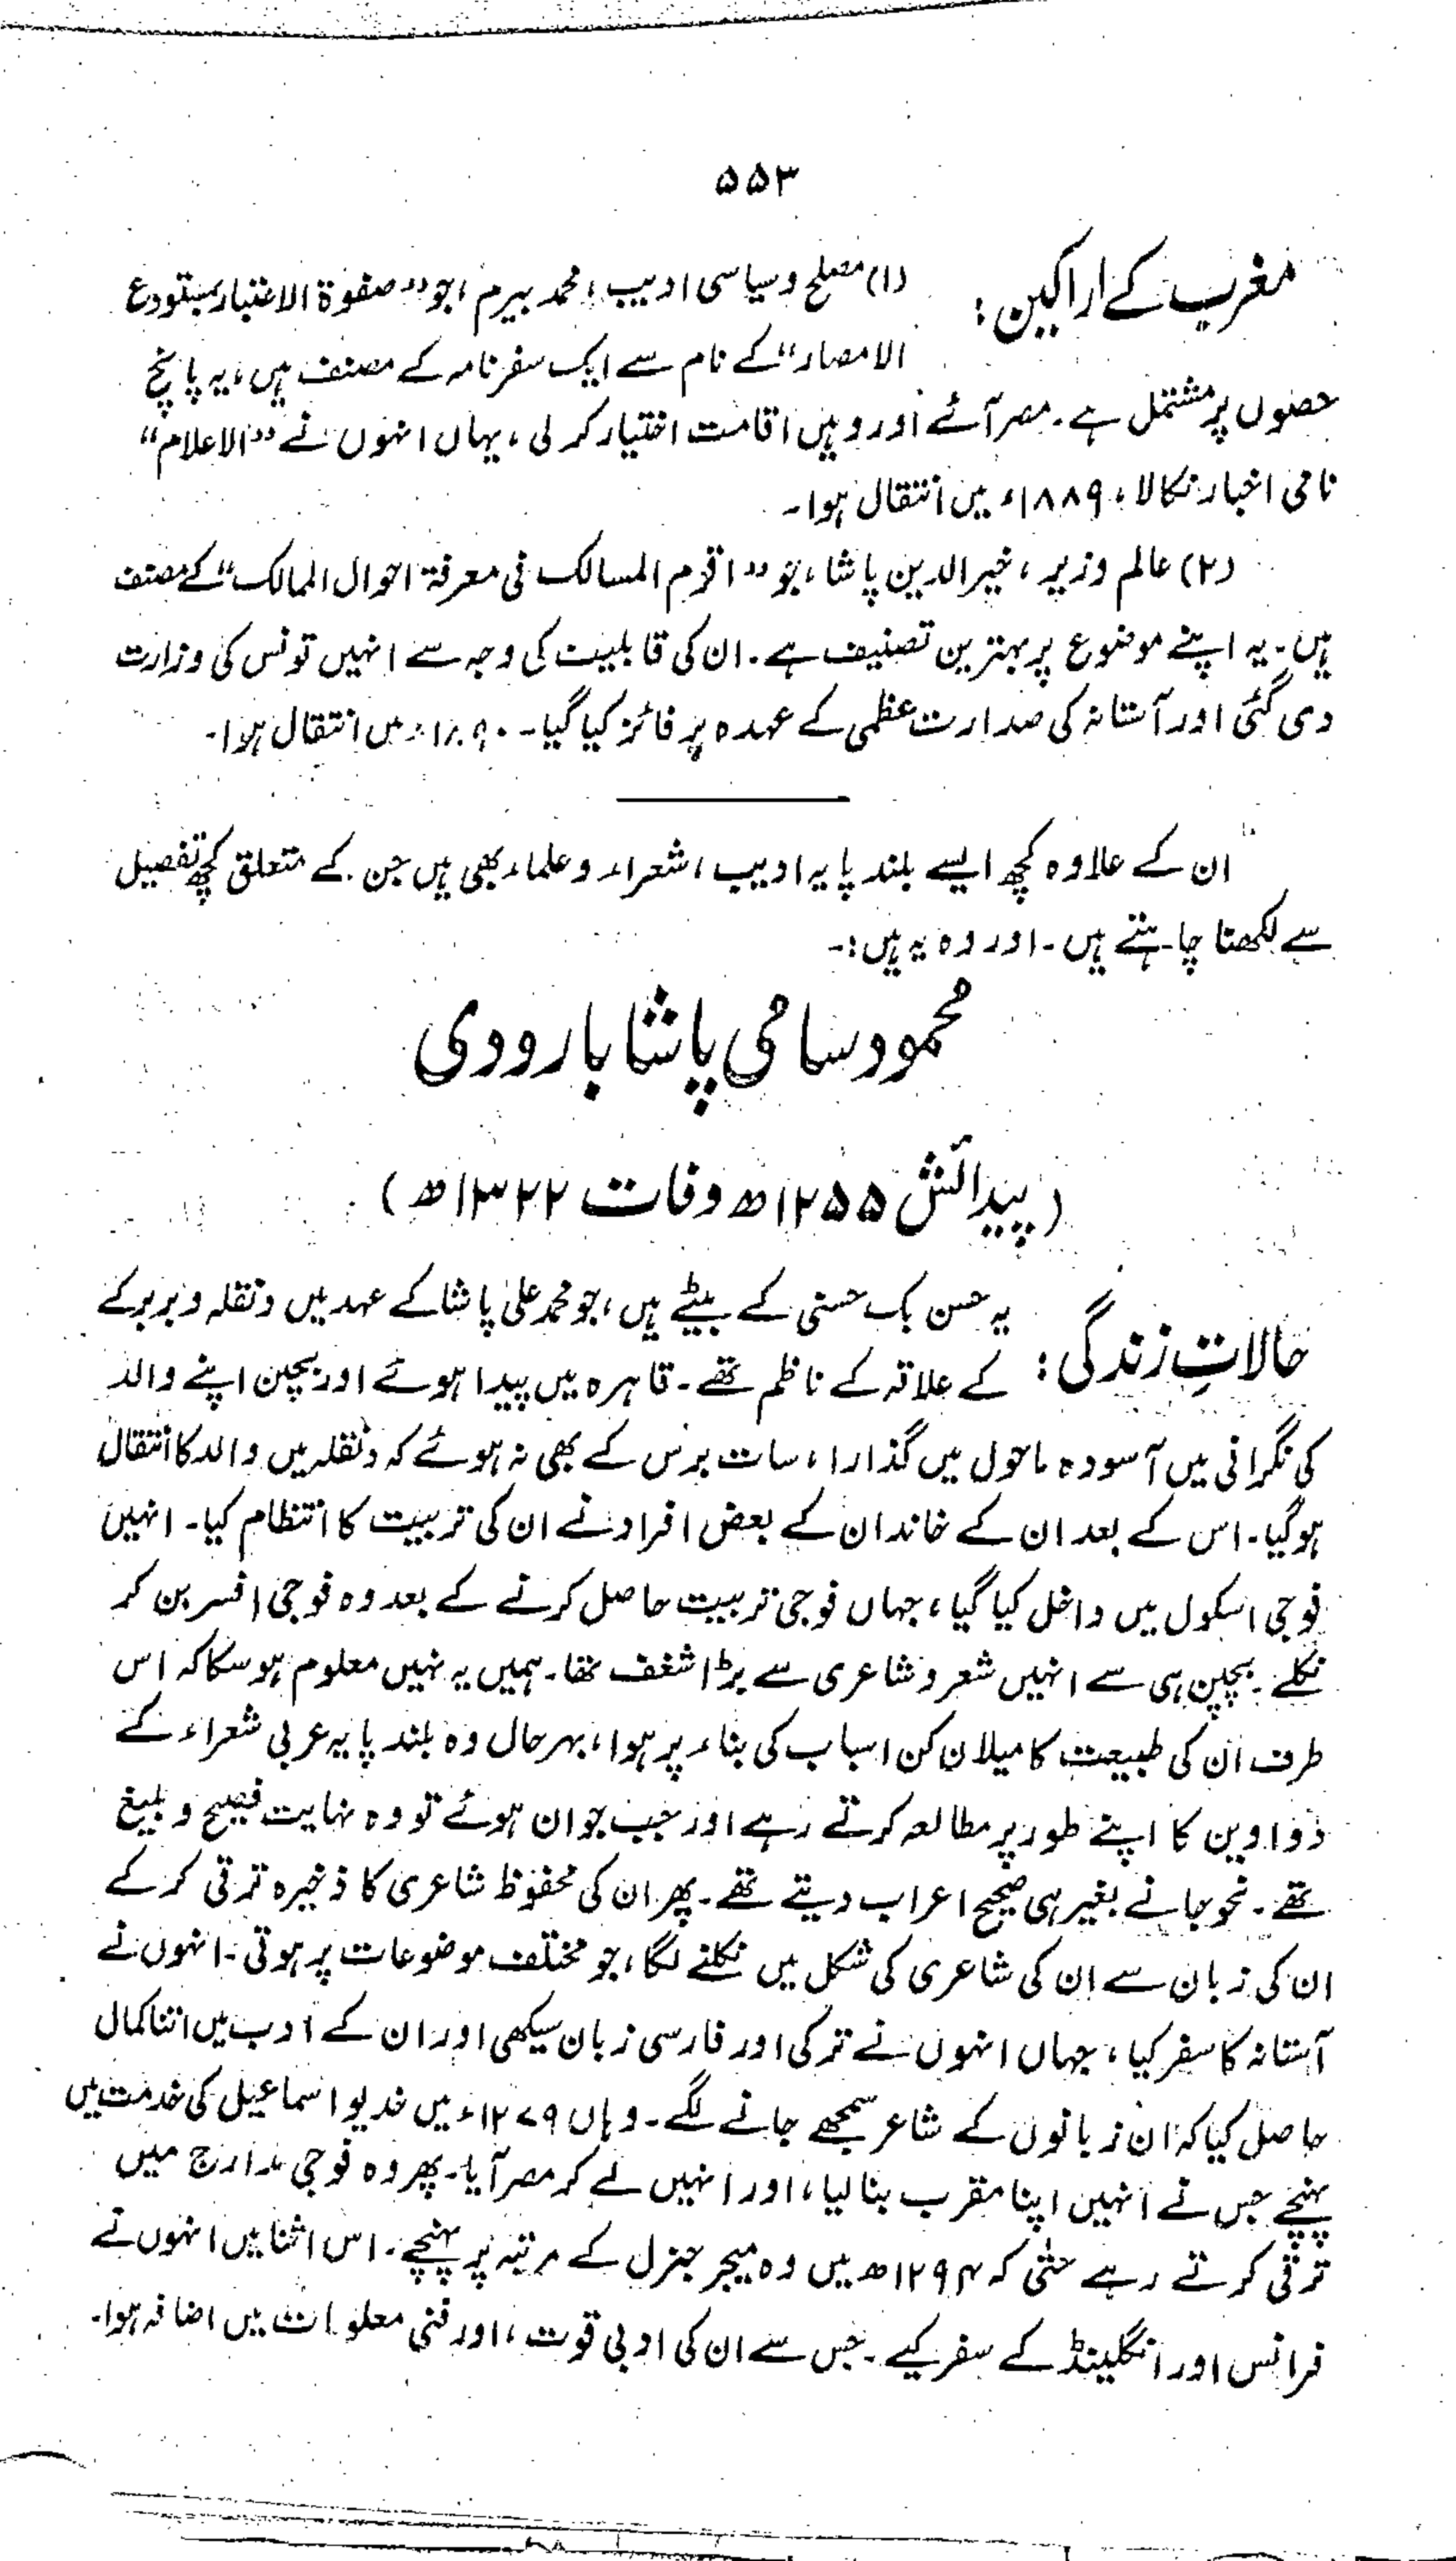 ۵۵۳
مغرب کے اراکین: (۱) مصلح و سیاسی ادیب، محمد بیرم، جو "صفوۃ الاعتبار بمستودع
الامصار" کے نام سے ایک سفرنامہ کے مصنف ہیں، یہ پانچ
حصوں پر مشتمل ہے۔ مصر آئے اور وہیں اقامت اختیار کر لی، یہاں انہوں نے "الاعلام"
نامی اخبار نکالا، ۱۸۸۹ء میں انتقال ہوا۔
(۲) عالم وزیر، خیر الدین پاشا، جو "اقوم المسالک فی معرفۃ احوال الممالک" کے مصنف
ہیں۔ یہ اپنے موضوع پر بہترین تصنیف ہے۔ ان کی قابلیت کی وجہ سے انہیں تونس کی وزارت
دی گئی اور آستانہ کی صدارت عظمیٰ کے عہدہ پر فائز کیا گیا۔ ۱۸۹۰ء میں انتقال ہوا۔
ان کے علاوہ کچھ ایسے بلند پایہ ادیب، شعراء و علماء بھی ہیں جن کے متعلق کچھ تفصیل
سے لکھنا چاہتے ہیں۔ اور وہ یہ ہیں:۔
محمود سامی پاشا بارودی
(پیدائش ۱۲۵۵ھ وفات ۱۳۲۲ھ)
حالاتِ زندگی: یہ حسن بک حسنی کے بیٹے ہیں، جو محمد علی پاشا کے عہد میں دنقلہ و بربر کے
کے علاقہ کے ناظم تھے۔ قاہرہ میں پیدا ہوئے اور بچپن اپنے والد
کی نگرانی میں آسودہ ماحول میں گذارا، سات برس کے بھی نہ ہوئے کہ دنقلہ میں والد کا انتقال
ہوگیا۔ اس کے بعد ان کے خاندان کے بعض افراد نے ان کی تربیت کا انتظام کیا۔ انہیں
فوجی اسکول میں داخل کیا گیا، جہاں فوجی تربیت حاصل کرنے کے بعد وہ فوجی افسر بن کر
نکلے۔ بچپن ہی سے انہیں شعر و شاعری سے بڑا شغف تھا۔ ہمیں یہ نہیں معلوم ہو سکا کہ اس
طرف ان کی طبیعت کا میلان کن اسباب کی بناء پر ہوا، بہرحال وہ بلند پایہ عربی شعراء کے
دواوین کا اپنے طور پر مطالعہ کرتے رہے اور جب جوان ہوئے تو وہ نہایت فصیح و بلیغ
تھے۔ نحو جانے بغیر ہی صحیح اعراب دیتے تھے۔ پھر ان کی محفوظ شاعری کا ذخیرہ ترقی کر کے
ان کی زبان سے ان کی شاعری کی شکل میں نکلنے لگا، جو مختلف موضوعات پر ہوتی۔ انہوں نے
آستانہ کا سفر کیا، جہاں انہوں نے ترکی اور فارسی زبان سیکھی اور ان کے ادب میں اتنا کمال
حاصل کیا کہ ان زبانوں کے شاعر سمجھے جانے لگے۔ وہاں ۱۲۷۹ء میں خدیو اسماعیل کی خدمت میں
پہنچے جس نے انہیں اپنا مقرب بنا لیا، اور انہیں لے کر مصر آیا۔ پھر وہ فوجی مدارج میں
ترقی کرتے رہے حتیٰ کہ ۱۲۹۴ھ میں وہ میجر جنرل کے مرتبہ پر پہنچے۔ اس اثنا میں انہوں نے
فرانس اور انگلینڈ کے سفر کیے۔ جس سے ان کی ادبی قوت، اور فنی معلومات میں اضافہ ہوا۔